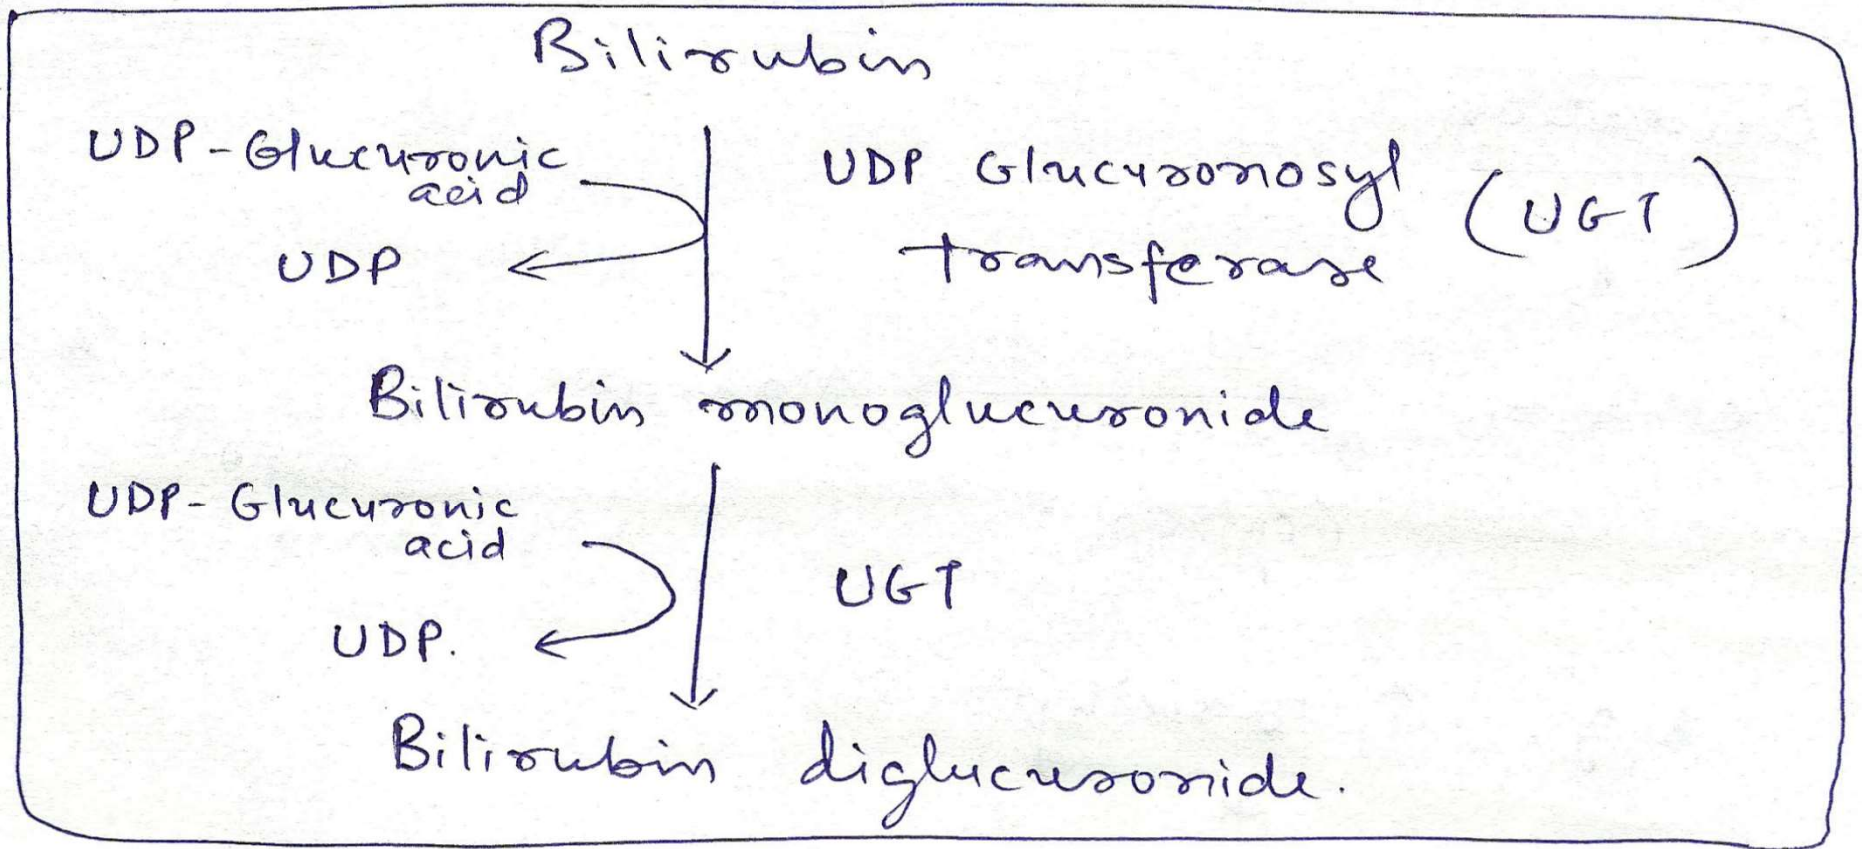 Bilirubin
UDP-Glucuronic
acid
UDP
UDP Glucuronosyl
transferase
(UGT)
Bilirubin monoglucuronide
UDP- Glucuronic
acid
UDP.
UGT
Bilirubin diglucuronide.